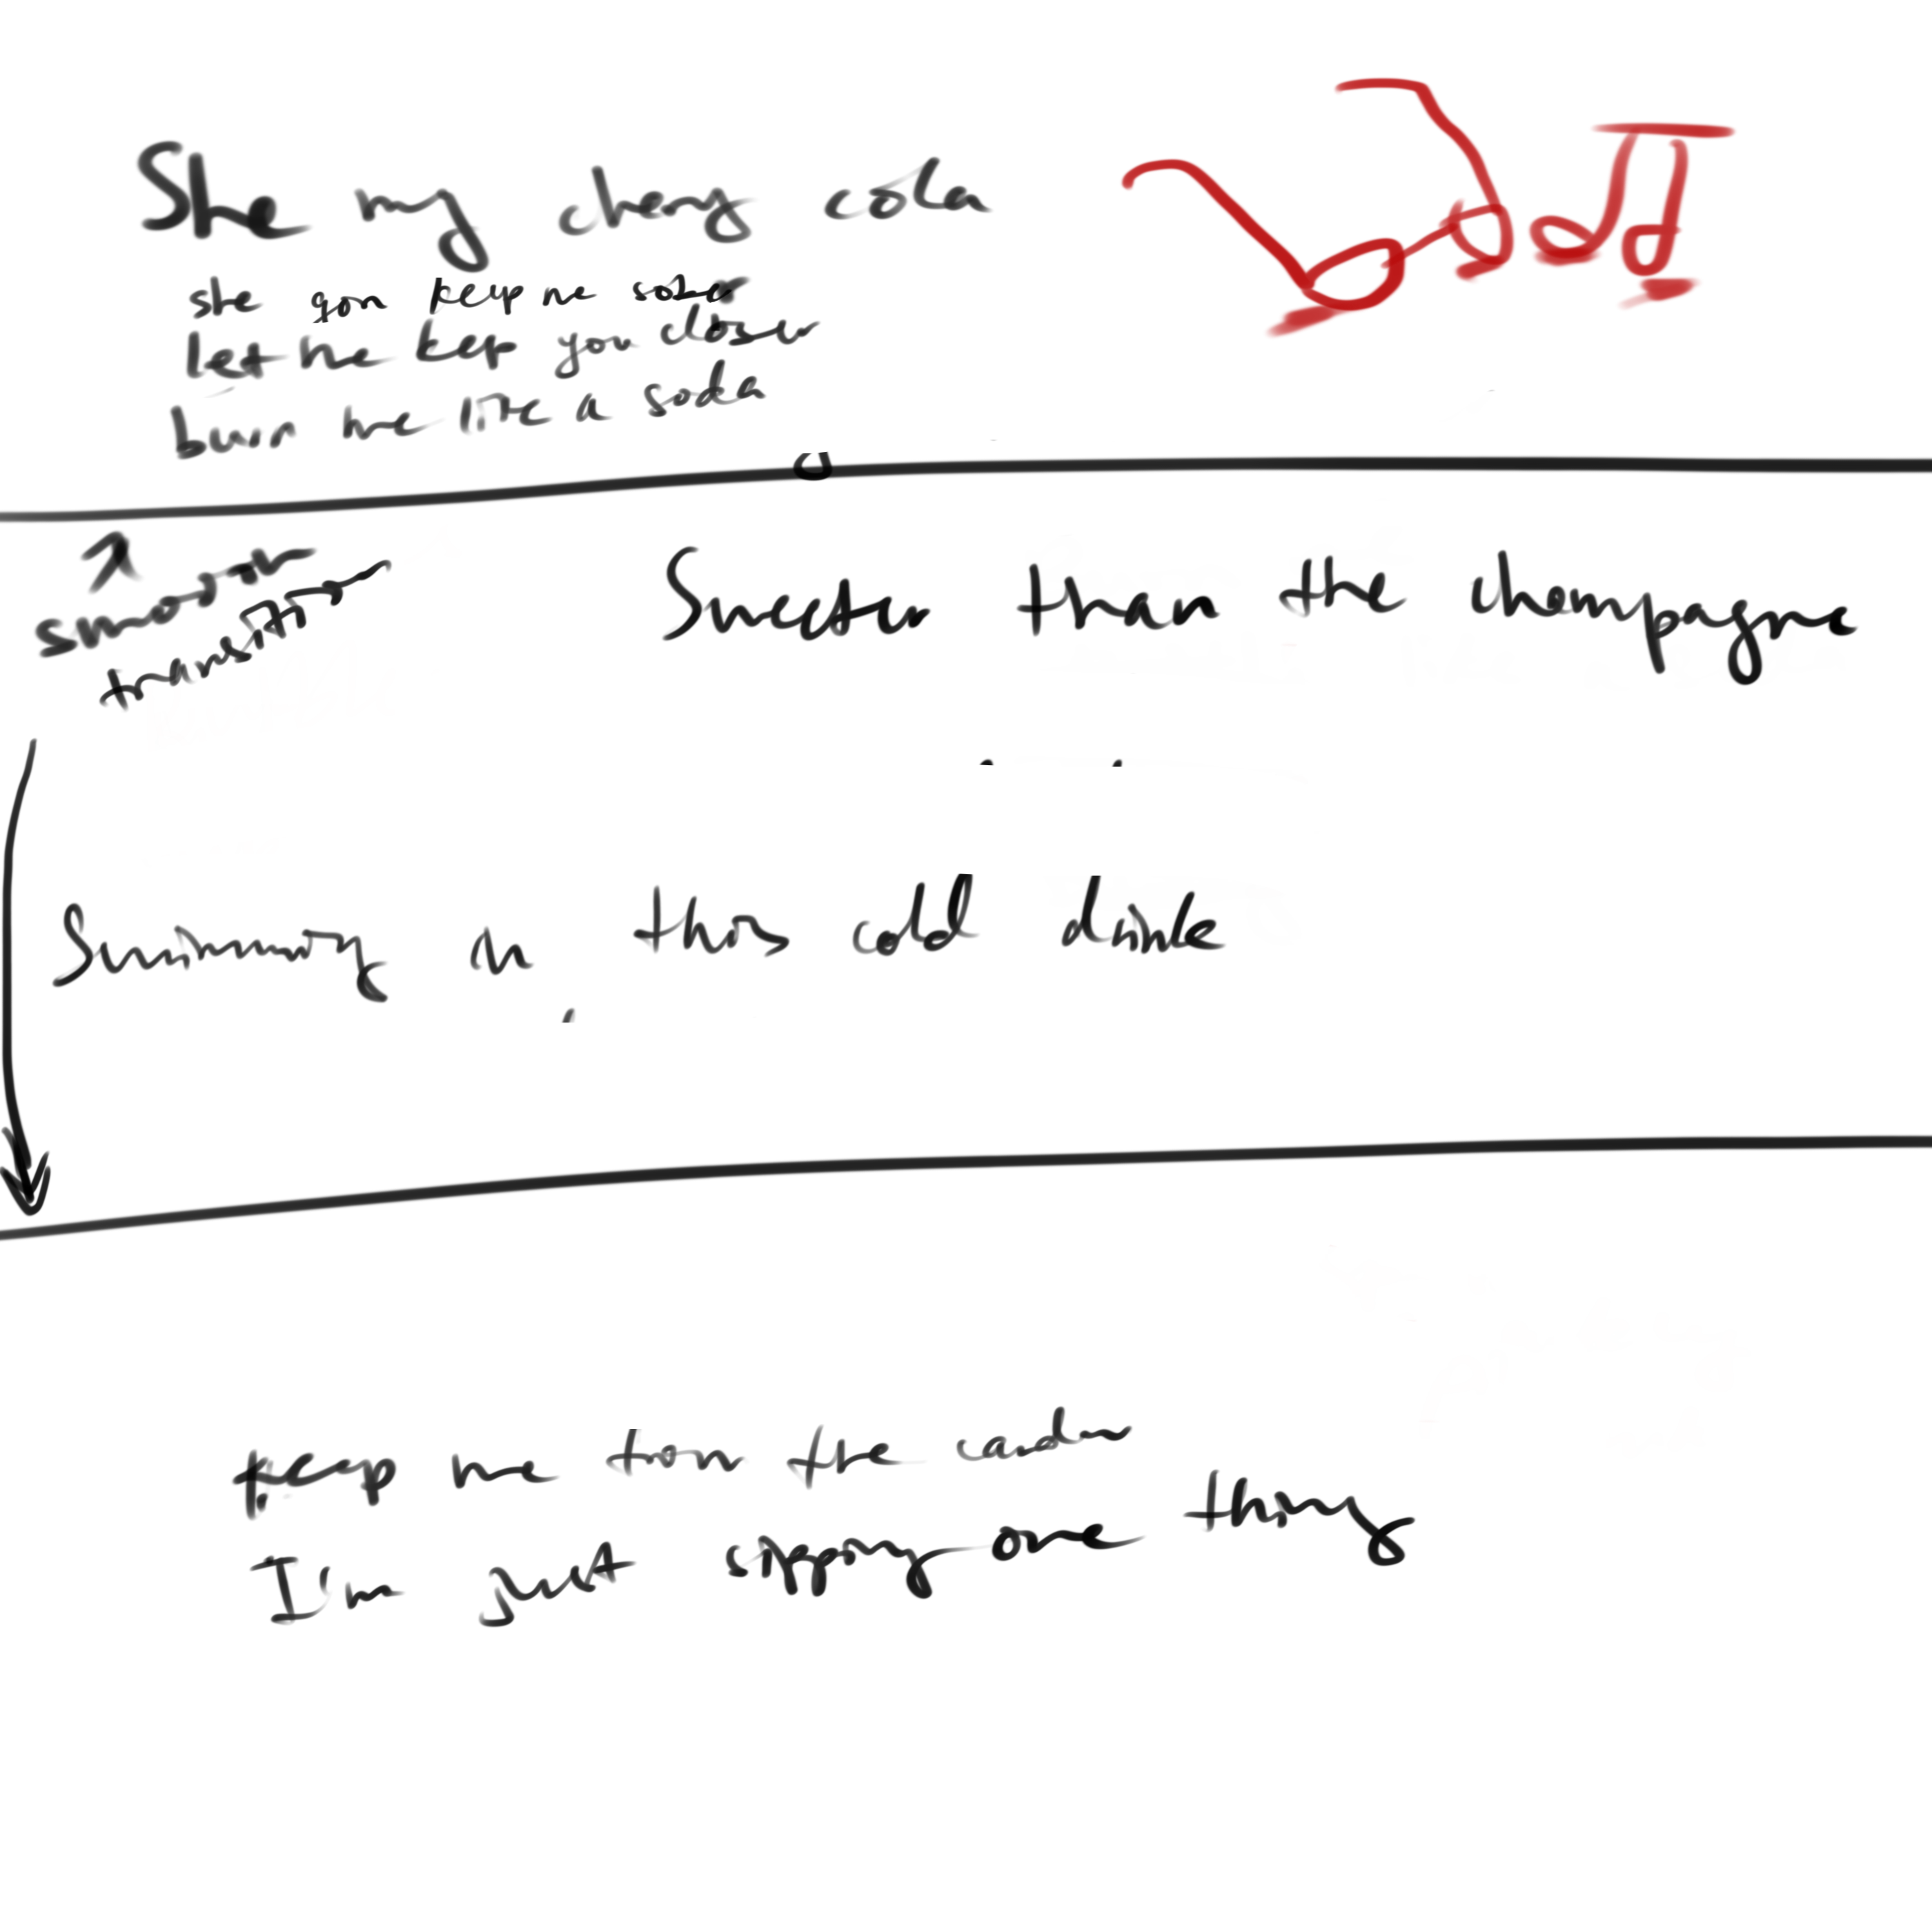 She my cherry cola
she gon keep me sober
let me keep you closer
burn me like a soda
smooth
transition
Sweeter than the champagne
Swimming in this cold drink
keep me from the
I'm just sipping one thing